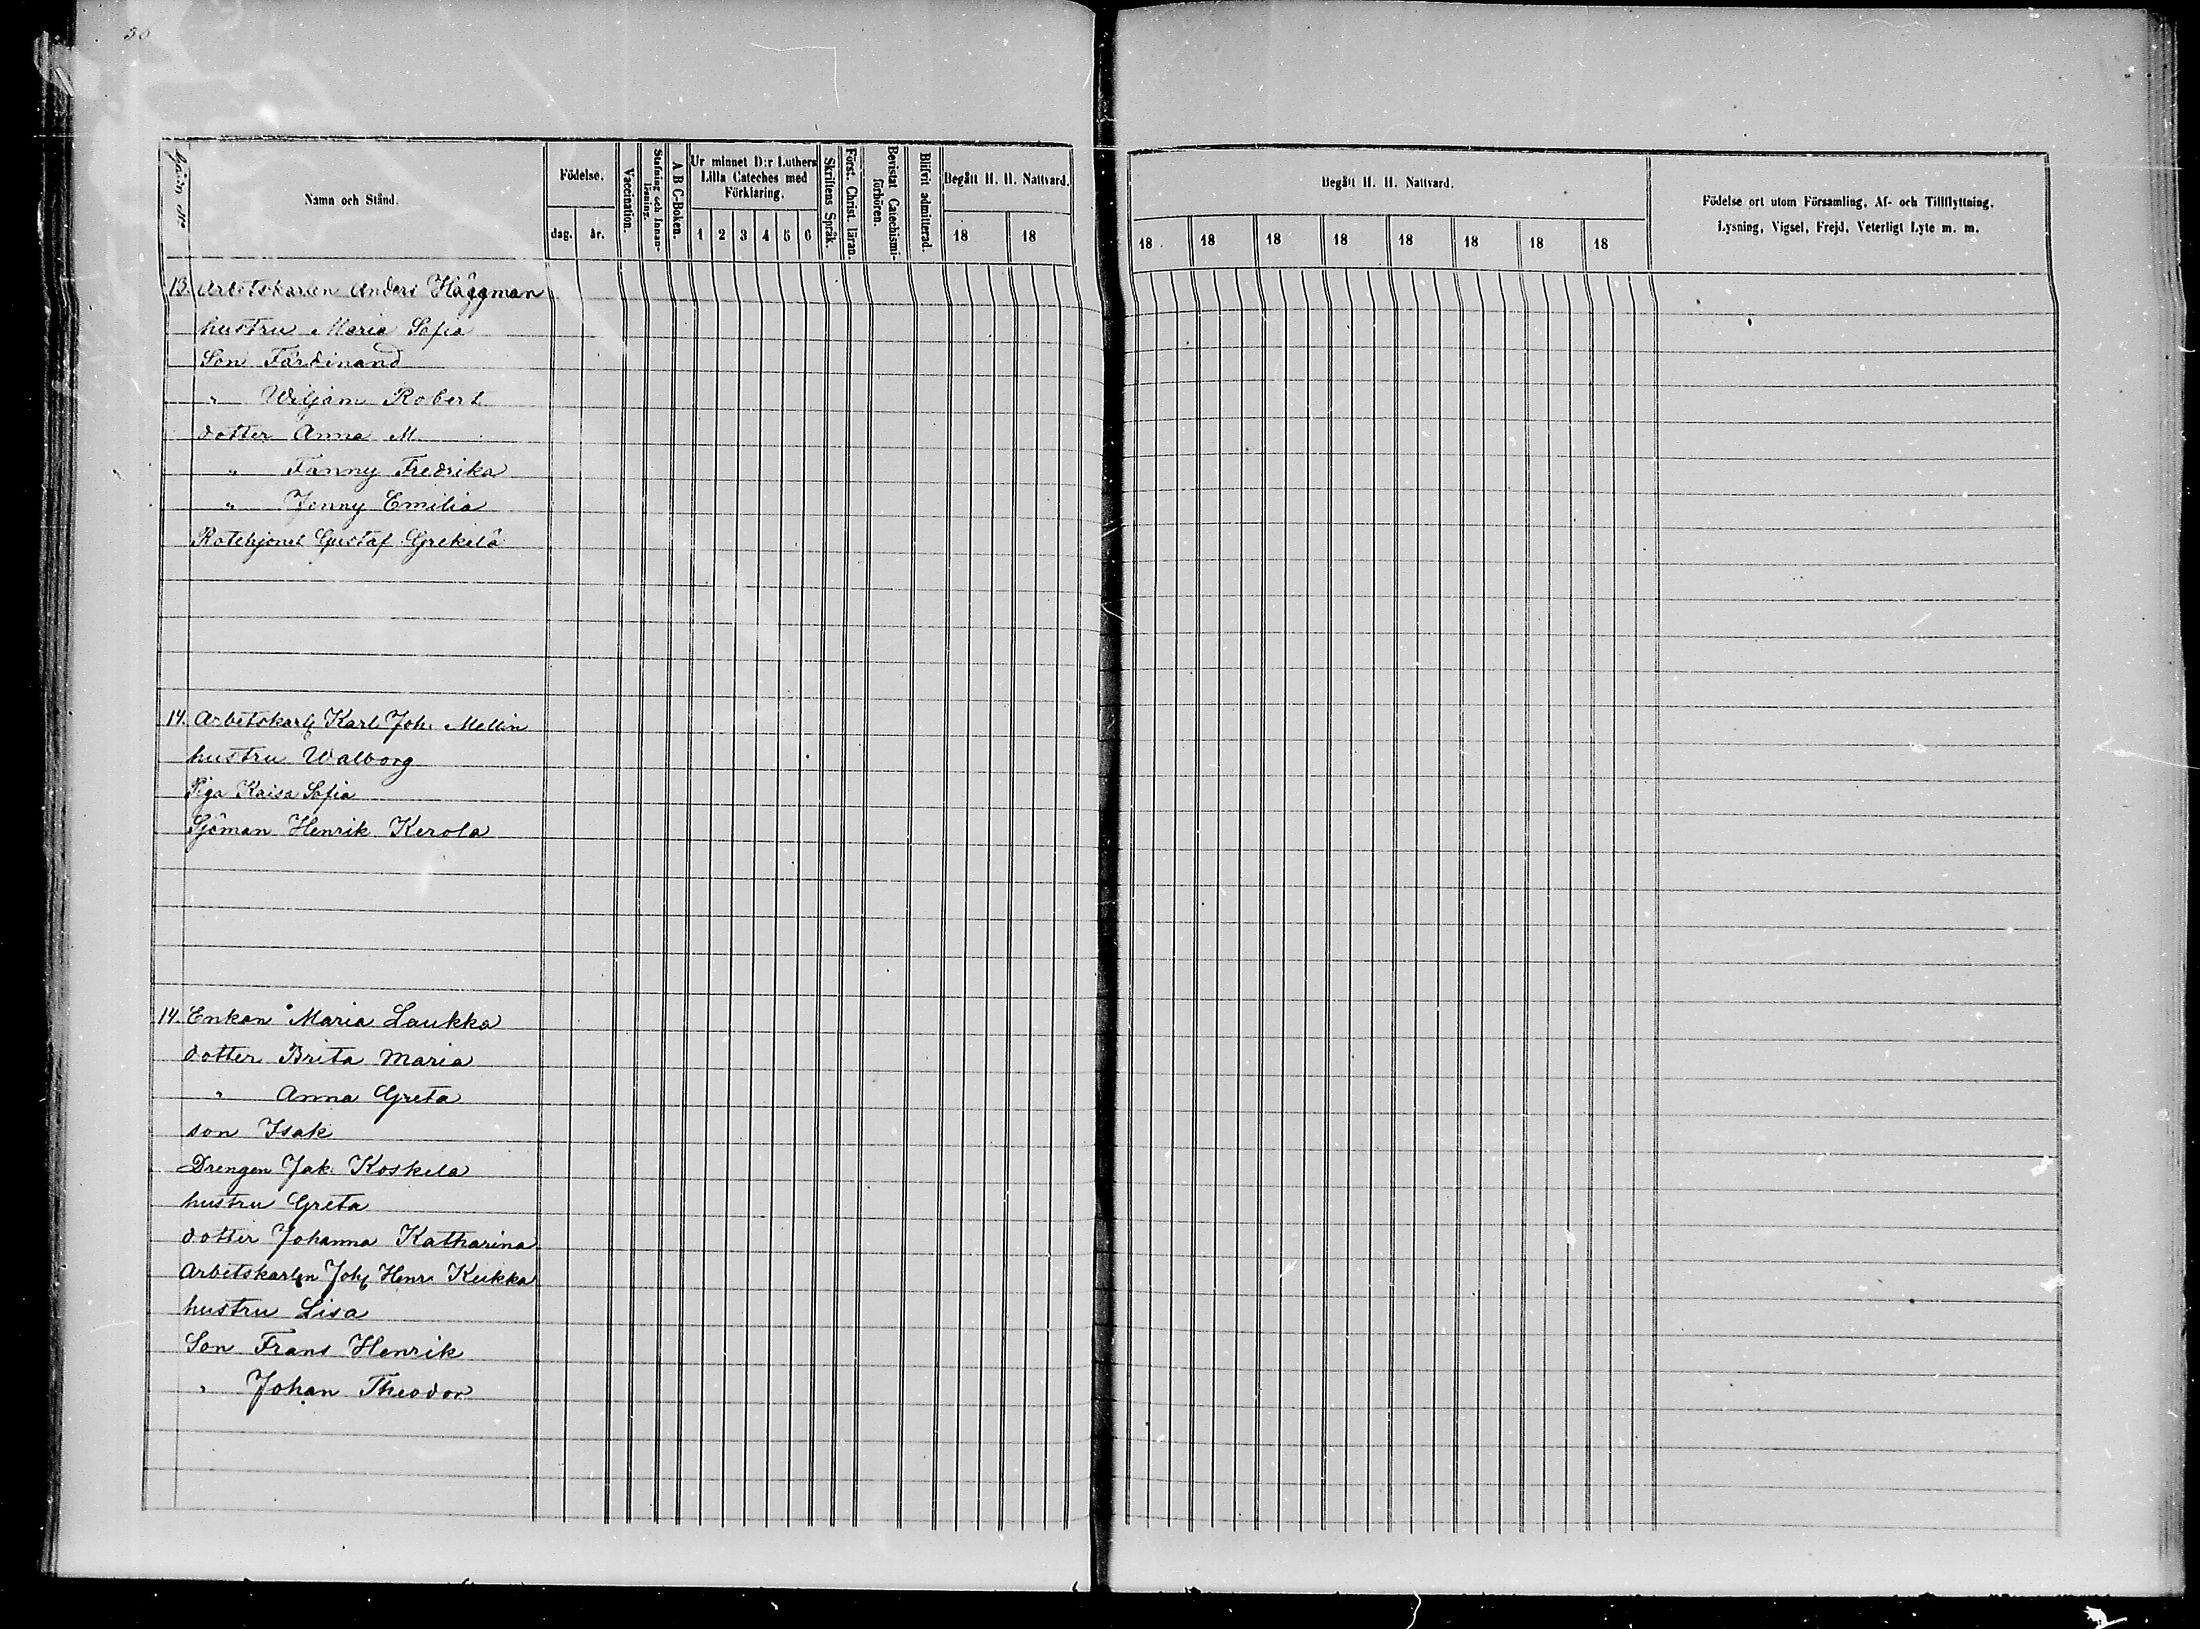 36
Gård №
Namn och Stånd.
Födelse.
dag.
år.
Vaccination.
Stafning och Innan-
läsning.
A B C-Boken.
Ur minnet D:r Luthers
Lilla Cateches med
Förklaring.
1 2 3 4 5 6
Skriftens Språk.
Först. Christ. läran.
Bevistat Catechismi-
förhören.
Blifvit admitterad.
Begått H. H. Nattvard.
18 18
Begått H. H. Nattvard.
18 18 18 18 18 18 18 18
Födelse ort utom Församling, Af- och Tillflyttning,
Lysning, Vigsel, Frejd, Veterligt Lyte m. m.
13. Arbetskarlen Anders Häggman
hustru Maria Sofia
Son Ferdinand
" Wiljam Robert
dotter Anna M.
" Fanny Fredrika
" Jenny Emilia
Rotehjonet Gustaf Grekelä
14. Arbetskarl Karl Joh. Mellin
hustru Walborg
Piga Kaisa Sofia
Sjöman Henrik Kerola
14. Enkan Maria Laukka
dotter Brita Maria
" Anna Greta
son Isak
Drengen Jak. Koskela
hustru Greta
dotter Johanna Katharina
Arbetskarlen Joh Henr. Keikka
hustru Lisa
Son Frans Henrik
" Johan Theodor